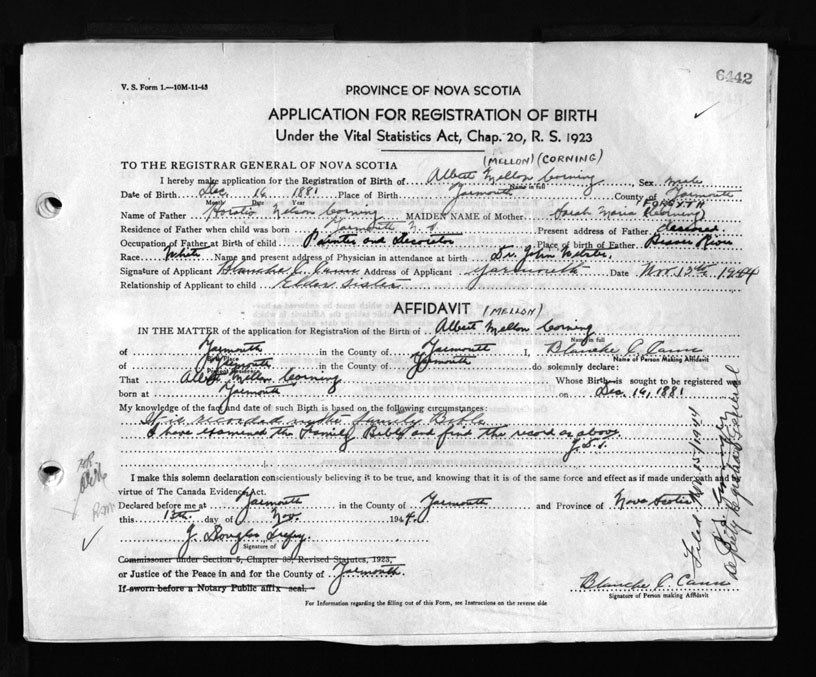 6442
V. S. Form 1.—10M-11-43
PROVINCE OF NOVA SCOTIA
APPLICATION FOR REGISTRATION OF BIRTH
Under the Vital Statistics Act, Chap. 20, R. S. 1923
(MELLON) (CORNING)
TO THE REGISTRAR GENERAL OF NOVA SCOTIA
I hereby make application for the Registration of Birth of Albert Mellon Corning, Sex male
Name in full
Date of Birth Dec. 16 1881 Place of Birth Yarmouth County of Yarmouth
Month Date Year
FORSYTH
Name of Father Horatio Nelson Corning MAIDEN NAME of Mother Sarah Maria (Corning)
Residence of Father when child was born Yarmouth N. S. Present address of Father deceased
Occupation of Father at Birth of child Painter and decorator Place of birth of Father Beaver River
Race White Name and present address of Physician in attendance at birth Dr. John Webster.
Signature of Applicant Blanche C. Cann Address of Applicant Yarmouth Date Nov 13th 1944
Relationship of Applicant to child Elder Sister
AFFIDAVIT (MELLON)
IN THE MATTER of the application for Registration of the Birth of Albert Mellon Corning
Name in full
of Yarmouth in the County of Yarmouth I, Blanche C. Cann
Birth Place
Name of Person Making Affidavit
of Yarmouth in the County of Yarmouth do solemnly declare:
Present Residence
That Albert Mellon Corning Whose Birth is sought to be registered was
born at Yarmouth on Dec. 16, 1881
My knowledge of the fact and date of such Birth is based on the following circumstances:
It is recorded in the family Bible
I have examined the Family Bible and find the record as above.
I make this solemn declaration conscientiously believing it to be true, and knowing that it is of the same force and effect as if made under oath and by
virtue of The Canada Evidence Act.
Declared before me at Yarmouth in the County of Yarmouth and Province of Nova Scotia
this 13th day of Nov. 1944.
J. Douglas
Signature of
Commissoner under Section 5, Chapter 38, Revised Statutes, 1923,
or Justice of the Peace in and for the County of Yarmouth.
If sworn before a Notary Public affix seal.
Blanche C. Cann
Signature of Person making Affidavit
For Information regarding the filling out of this Form, see Instructions on the reverse side
Filed Nov. 15/1944
Deputy Registrar General